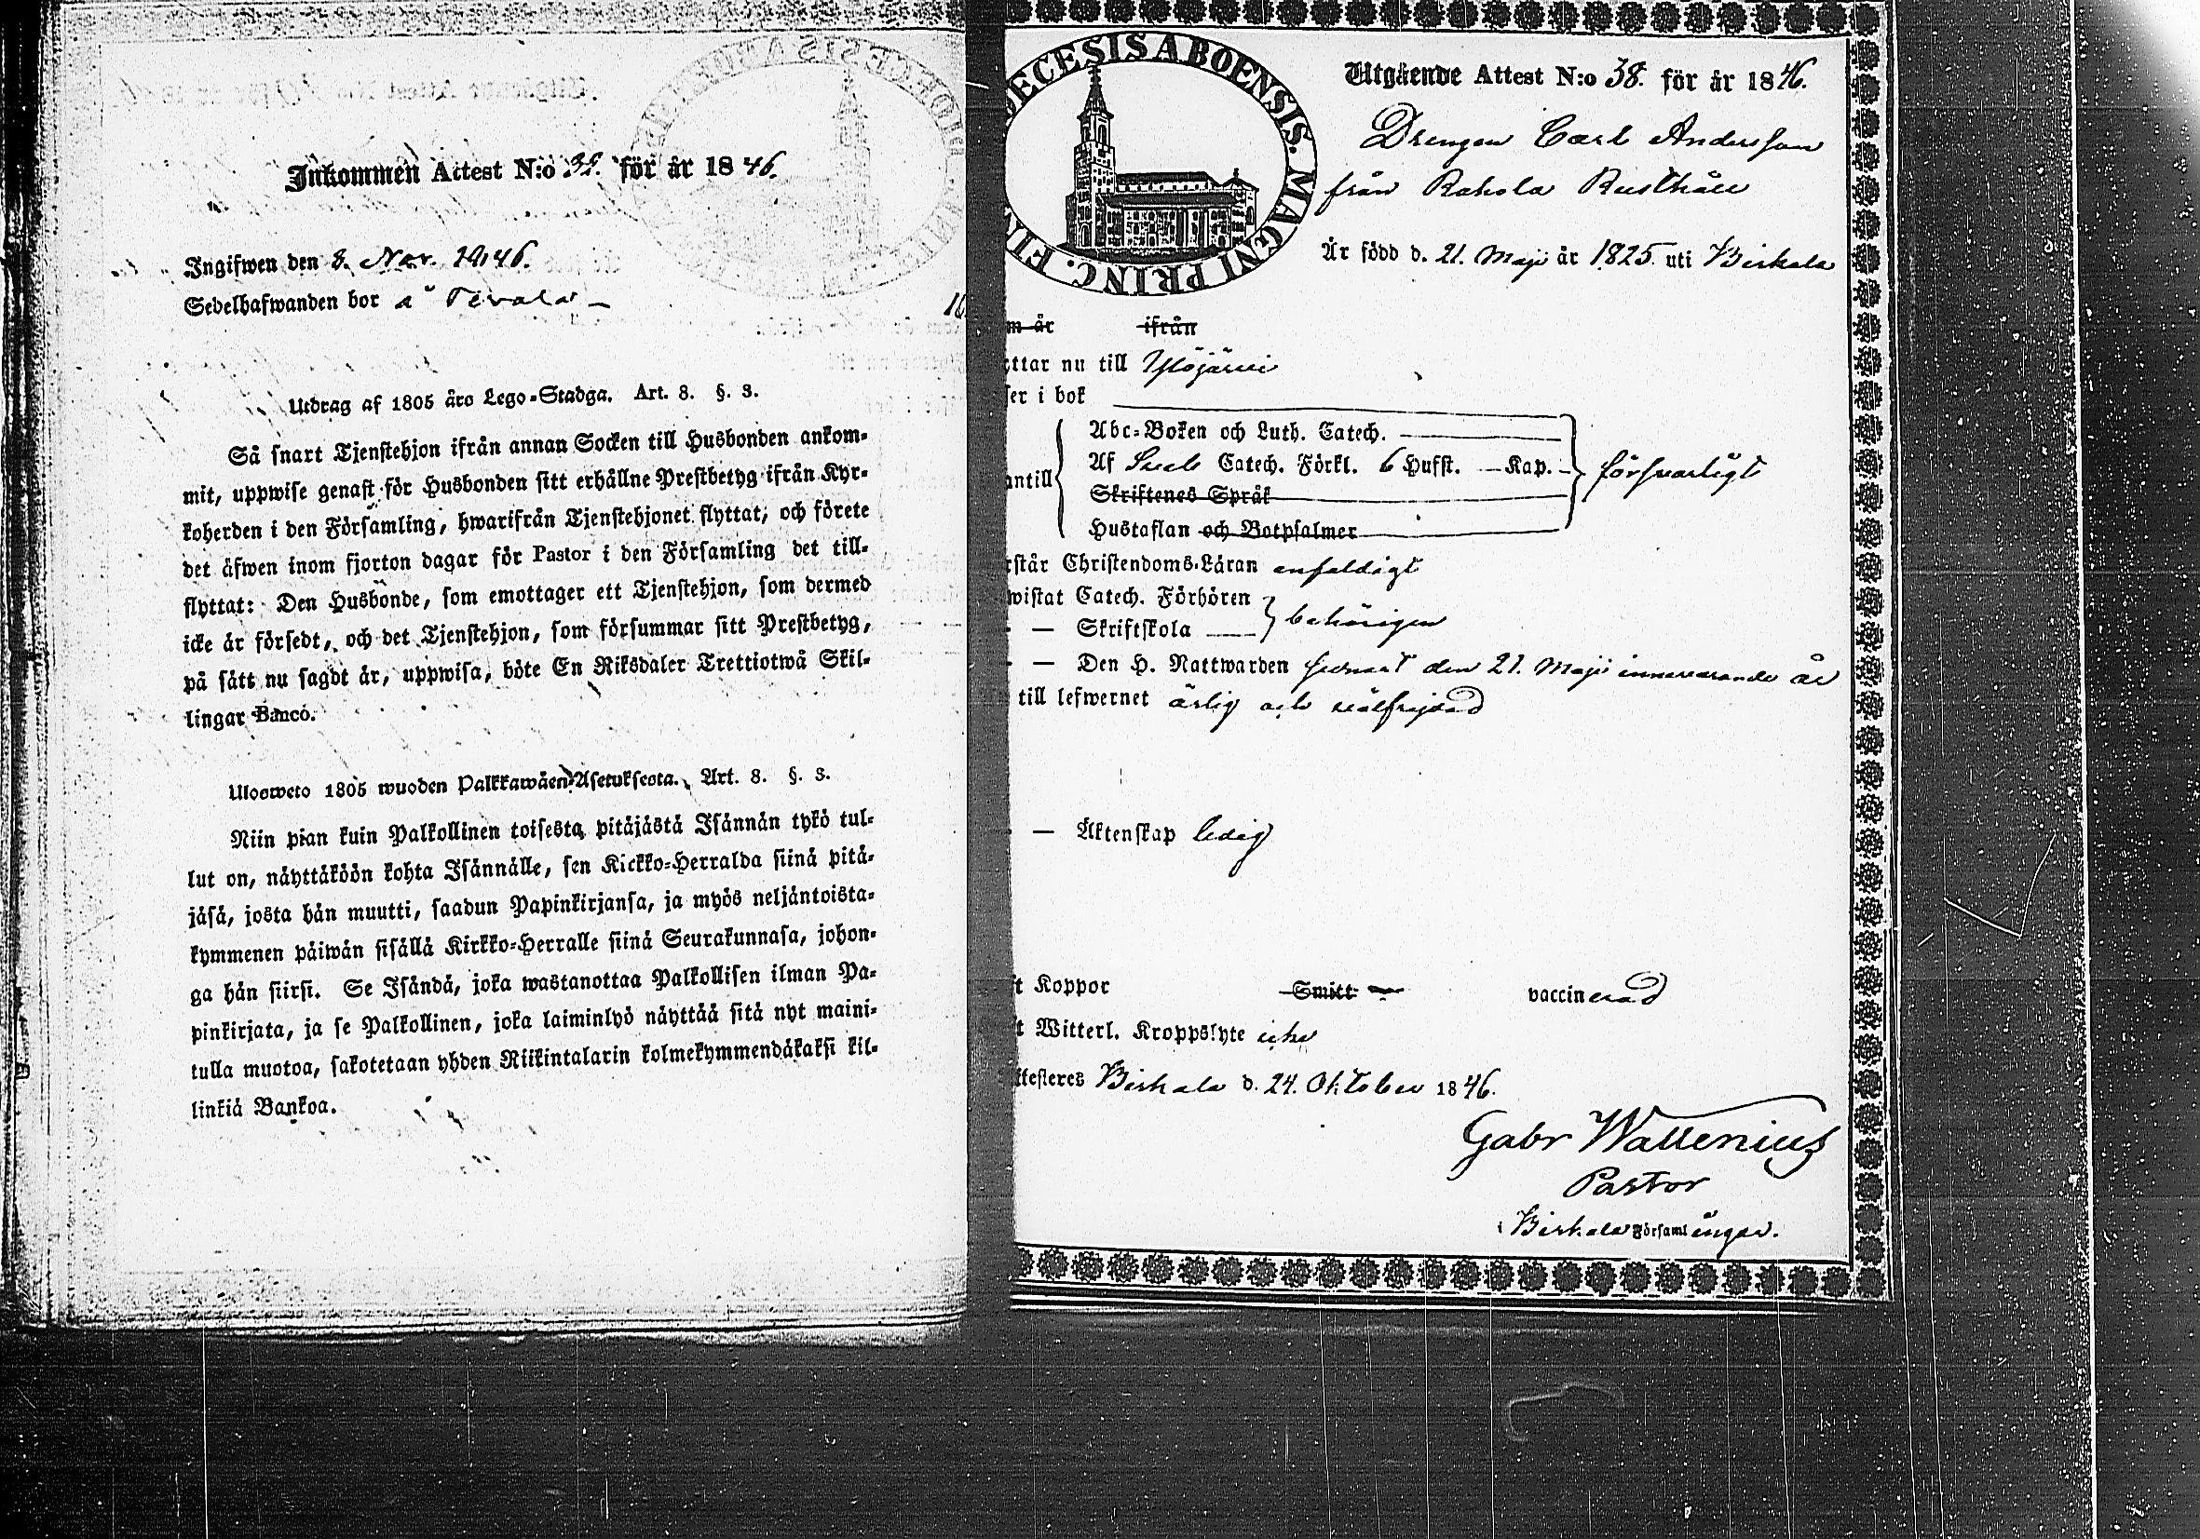 Inkommen Attest N:o 35. för år 1846.
Ingifwen den 8. Nov. 1846.
Sedelhafwanden bor å
Utdrag af 1805 års Lego-Stadga. Art. 8. §. 3.
Så snart Tjenstehjon ifrån annan Socken till Husbonden ankom-
mit, uppwise genast för Husbonden sitt erhållne Prestbetyg ifrån Kyr-
koherden i den Församling, hwarifrån Tjenstehjonet flyttat, och förete
det äfwen inom fjorton dagar för Pastor i den Församling det till-
flyttat: Den Husbonde, som emottager ett Tjenstehjon, som dermed
icke är försedt, och det Tjenstehjon, som försummar sitt Prestbetyg,
på sätt nu sagdt är, uppwisa, böte En Riksdaler Trettiotwå Skil-
lingar Banco.
Ulosweto 1805 wuoden Palkkawäen-Asetuksesta. Art. 8. §. 3.
Niin pian kuin Palkollinen toisesta pitäjästä Isännän tykö tul-
lut on, näyttäköön kohta Isännälle, sen Kirkko-Herralda siinä pitä-
jäsä, josta hän muutti, saadun Papinkirjansa, ja myös neljäntoista-
kymmenen päiwän sisällä Kirkko-Herralle siinä Seurakunnasa, johon-
ga hän siirsi. Se Isändä, joka wastanottaa Palkollisen ilman Pa-
pinkirjata, ja se Palkollinen, joka laiminlyö näyttää sitä nyt maini-
tulla muotoa, sakotetaan yhden Riikintalarin kolmekymmendäkaksi kil-
linkiä Bankoa.
ECESIS ABOENSIS. MAGNI PRINC. FIN
Utgående Attest N:o 38. för år 1846.
Drengen Carl Andersson
från Rahola Rusthåll
Är född d. 21. Maji år 1825. uti Birkala
m år ifrån
ttar nu till Ylöjärvi
ser i bok
Abc-Boken och Luth. Catech.
Af Sveb Catech. Förkl. 6 Hufst. — Kap. — försvarligt
antill
Skriftenes Språk
Hustaflan och Botpsalmer
rstår Christendoms-Läran enfaldigt
wistat Catech. Förhören
— Skriftskola behörigen
— Den H. Nattwarden senast den 21. Maji innevarande år
till lefwernet ärlig och välfrejdad
— Äktenskap ledig
t Koppor Smitt vaccinerad
t Witterl. Kroppslyte icke
ttesteres Birkala d. 24. Oktober 1846.
Gabr Wallenius
Pastor
i Birkala Församlingar.